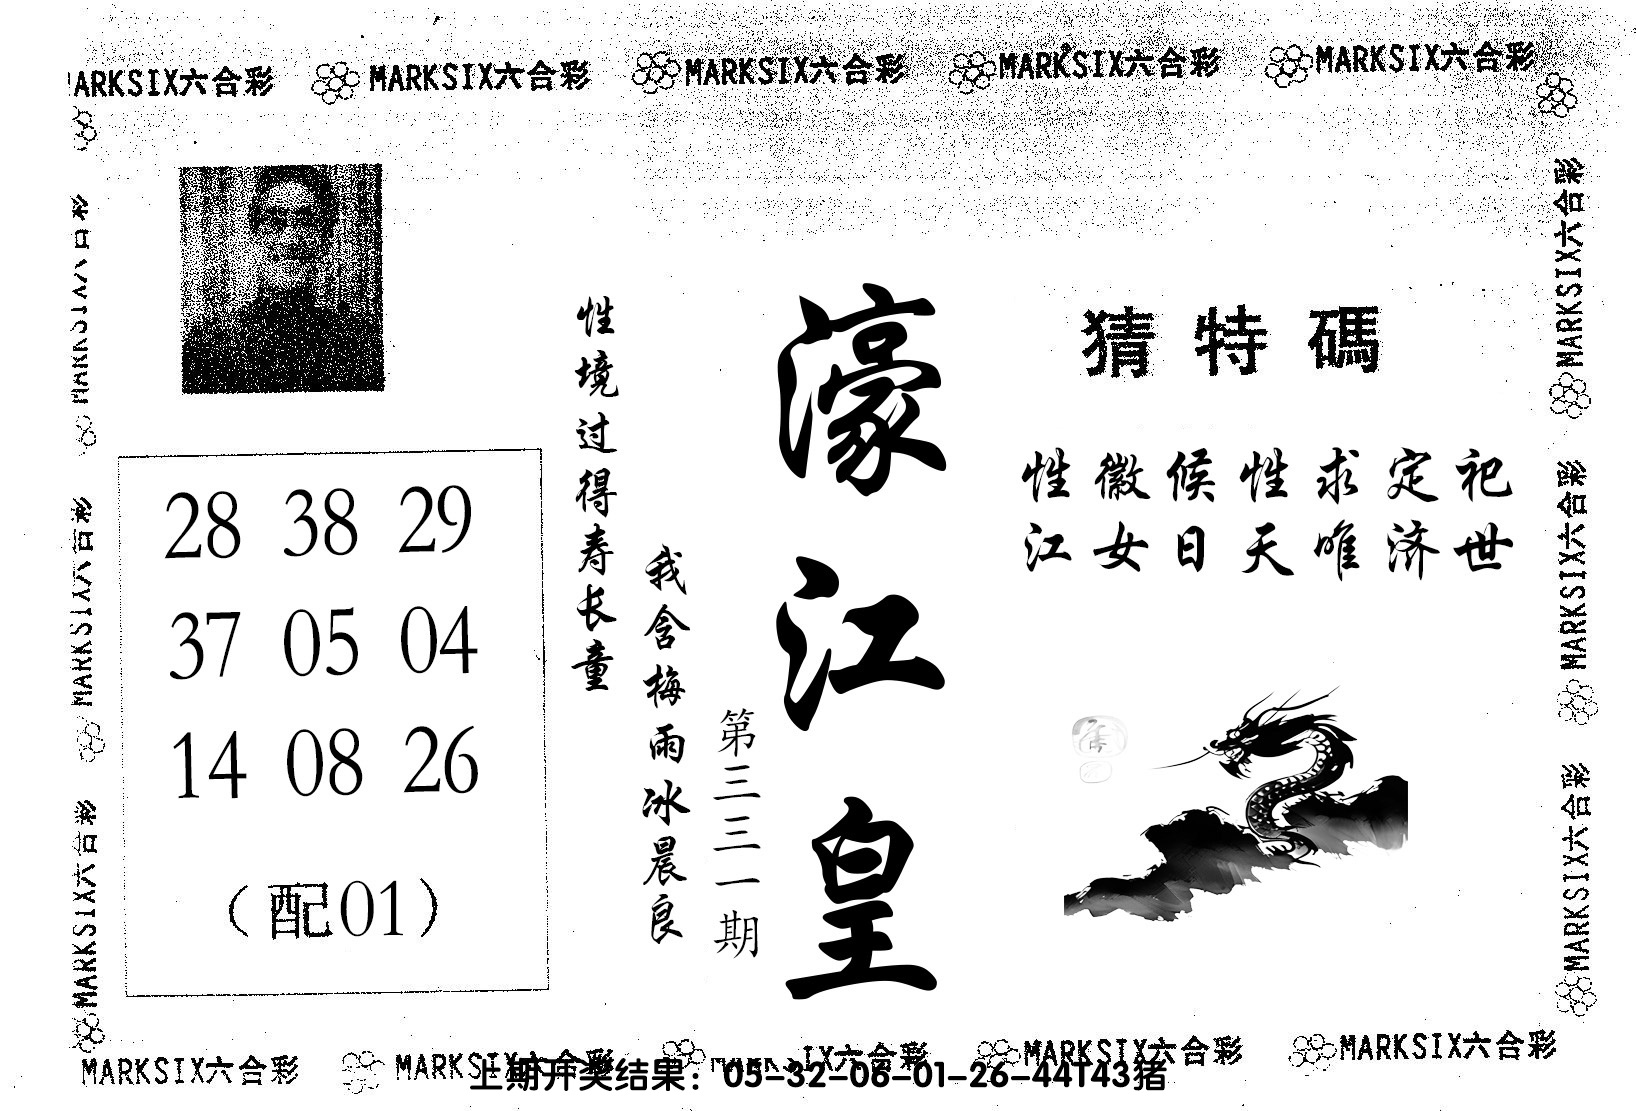 MARKSIX六合彩 MARKSIX六合彩 MARKSIX六合彩 MARKSIX六合彩 MARKSIX六合彩
MARKSIX六合彩
MARKSIX六合彩
MARKSIX六合彩
28 38 29
37 05 04
14 08 26
(配01)
性境过得寿长童
我含梅雨冰晨良
第三三一期
濠江皇
猜特碼
性徽候性求定祀
江女日天唯济世
MARKSIX六合彩
MARKSIX六合彩
MARKSIX六合彩
MARKSIX六合彩 MARKSIX六合彩 MARKSIX六合彩 MARKSIX六合彩 MARKSIX六合彩
上期开奖结果：05-32-06-01-26-44T43猪